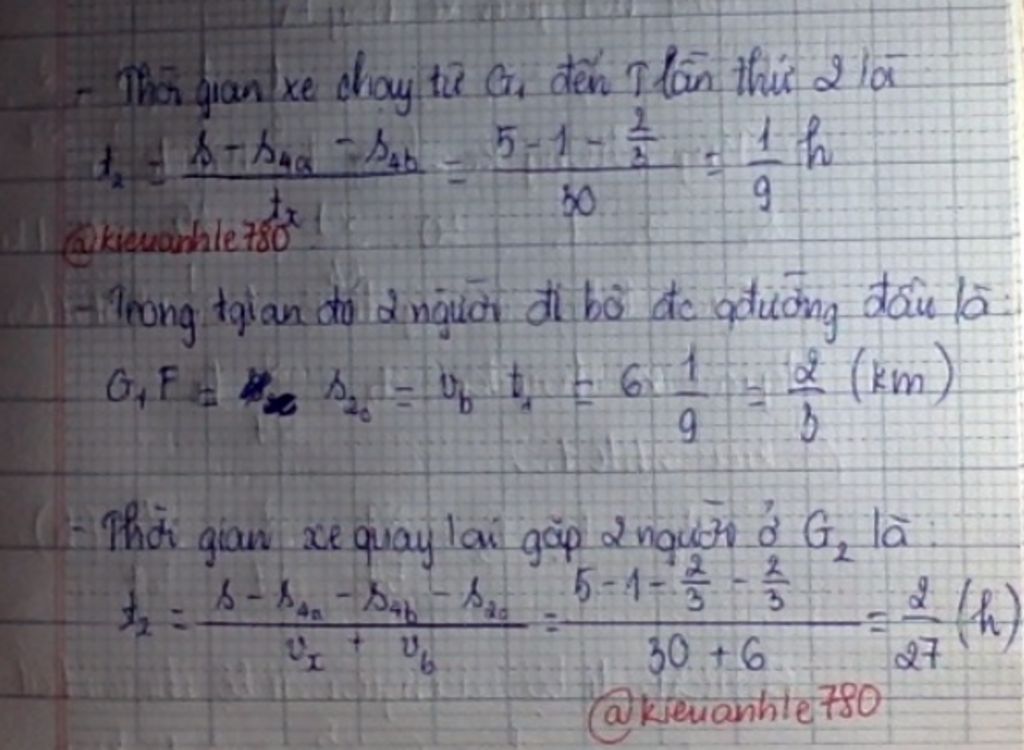 - Thời gian xe chạy từ G₁ đến T lần thứ 2 là
t₂ = (s - s₁ₐ - s₁b)/tₓ = (5 - 1 - 2/3)/30 = 1/9 h
@kieuanhle780
- Trong tgian đó 2 người đi bộ đc qđường đầu là:
G₁F = s₂ₐ = v_b t₁ = 6 1/9 = 2/3 (km)
- Thời gian xe quay lại gặp 2 người ở G₂ là:
t₂ = (s - s₁ₐ - s₁b - s₂ₐ)/(vₓ + v_b) = (5 - 1 - 2/3 - 2/3)/(30 + 6) = 2/27 (h)
@kieuanhle780